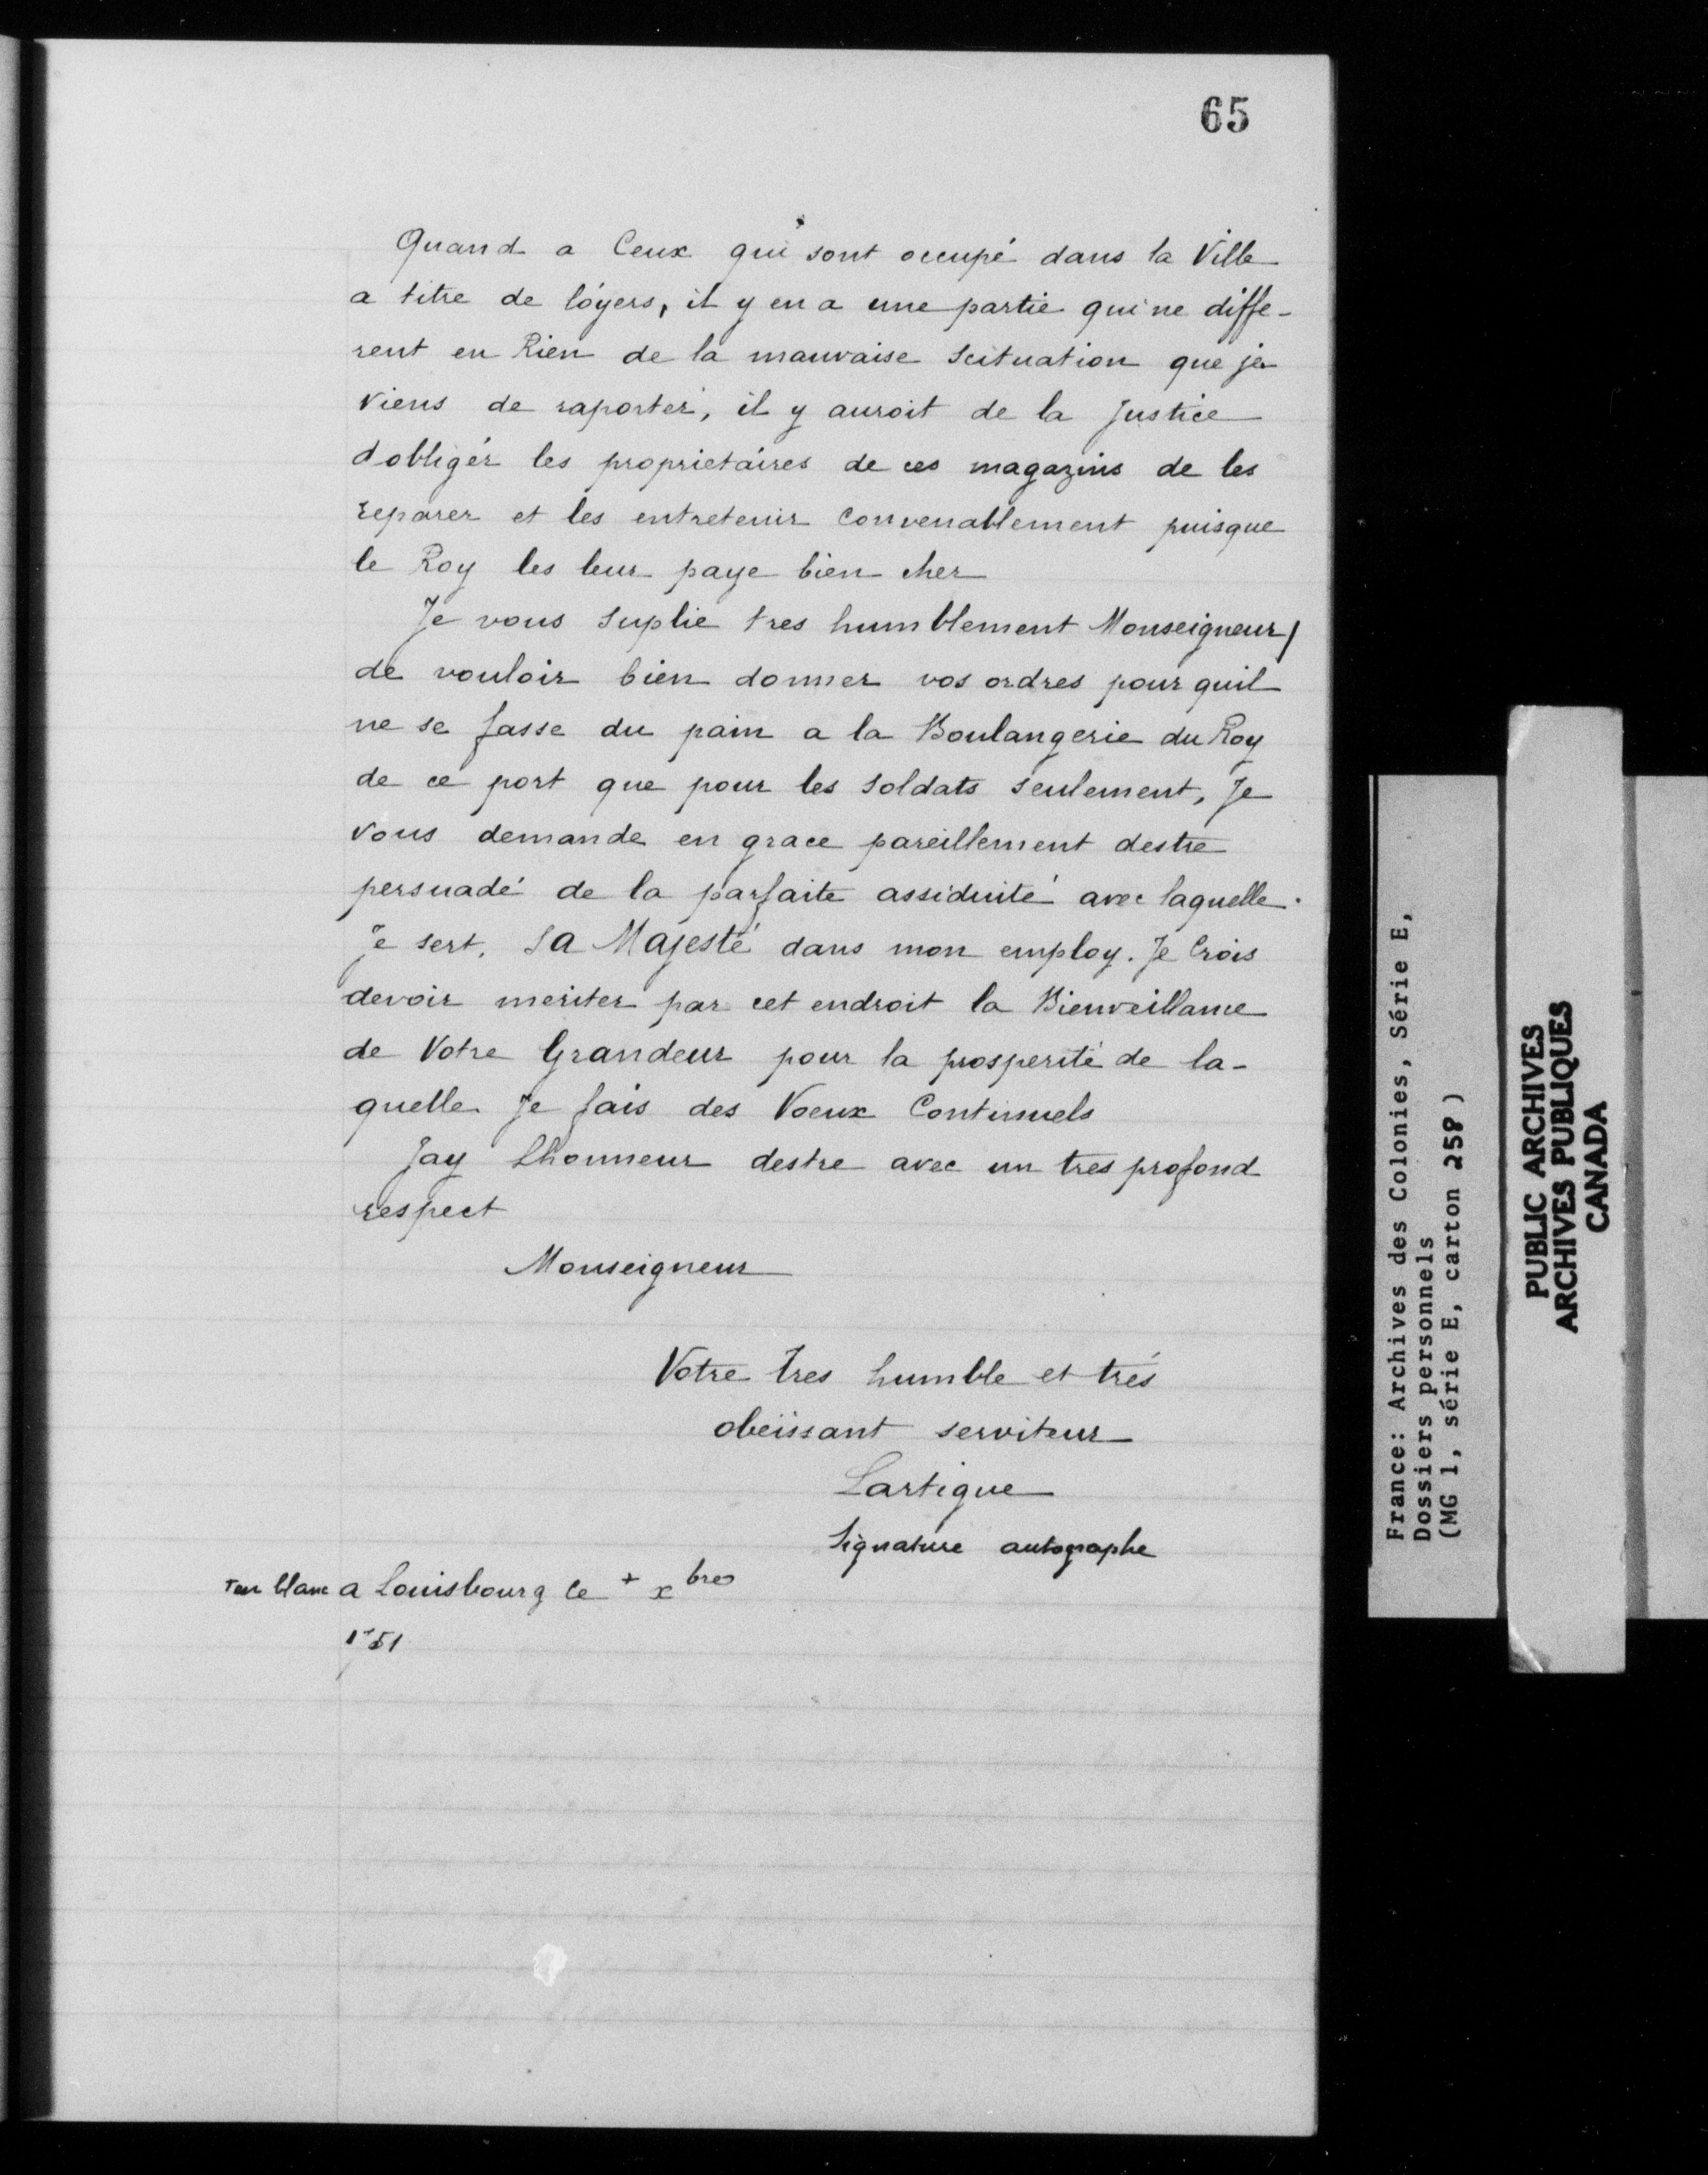 65
Quand a Ceux qui sont occupé dans la Ville
a titre de loyers, il y en a une partie qui ne diffe-
rent en Rien de la mauvaise scituation que je
viens de raporter, il y auroit de la Justice
dobliger les proprietaires de ces magazins de les
reparer et les entretenir Convenablement puisque
le Roy les leur paye bien cher
Je vous suplie tres humblement Monseigneur/
de vouloir bien donner vos ordres pour quil
ne se fasse du pain a la Boulangerie du Roy
de ce port que pour les soldats seulement, Je
vous demande en grace pareillement destre
persuadé de la parfaite assiduité avec laquelle
Je sert, Sa Majesté dans mon employ. Je Crois
devoir meriter par cet endroit la Bienveillance
de Votre Grandeur pour la prosperité de la-
quelle Je fais des Voeux Continuels
Jay Lhonneur destre avec un tres profond
respect
Monseigneur
Votre tres humble et trés
obeissant serviteur
Lartigue
Signature autographe
+ en blanc a Louisbourg le + xbre
1751
France: Archives des Colonies, Série E,
Dossiers personnels
(MG 1, série E, carton 258)
PUBLIC ARCHIVES
ARCHIVES PUBLIQUES
CANADA